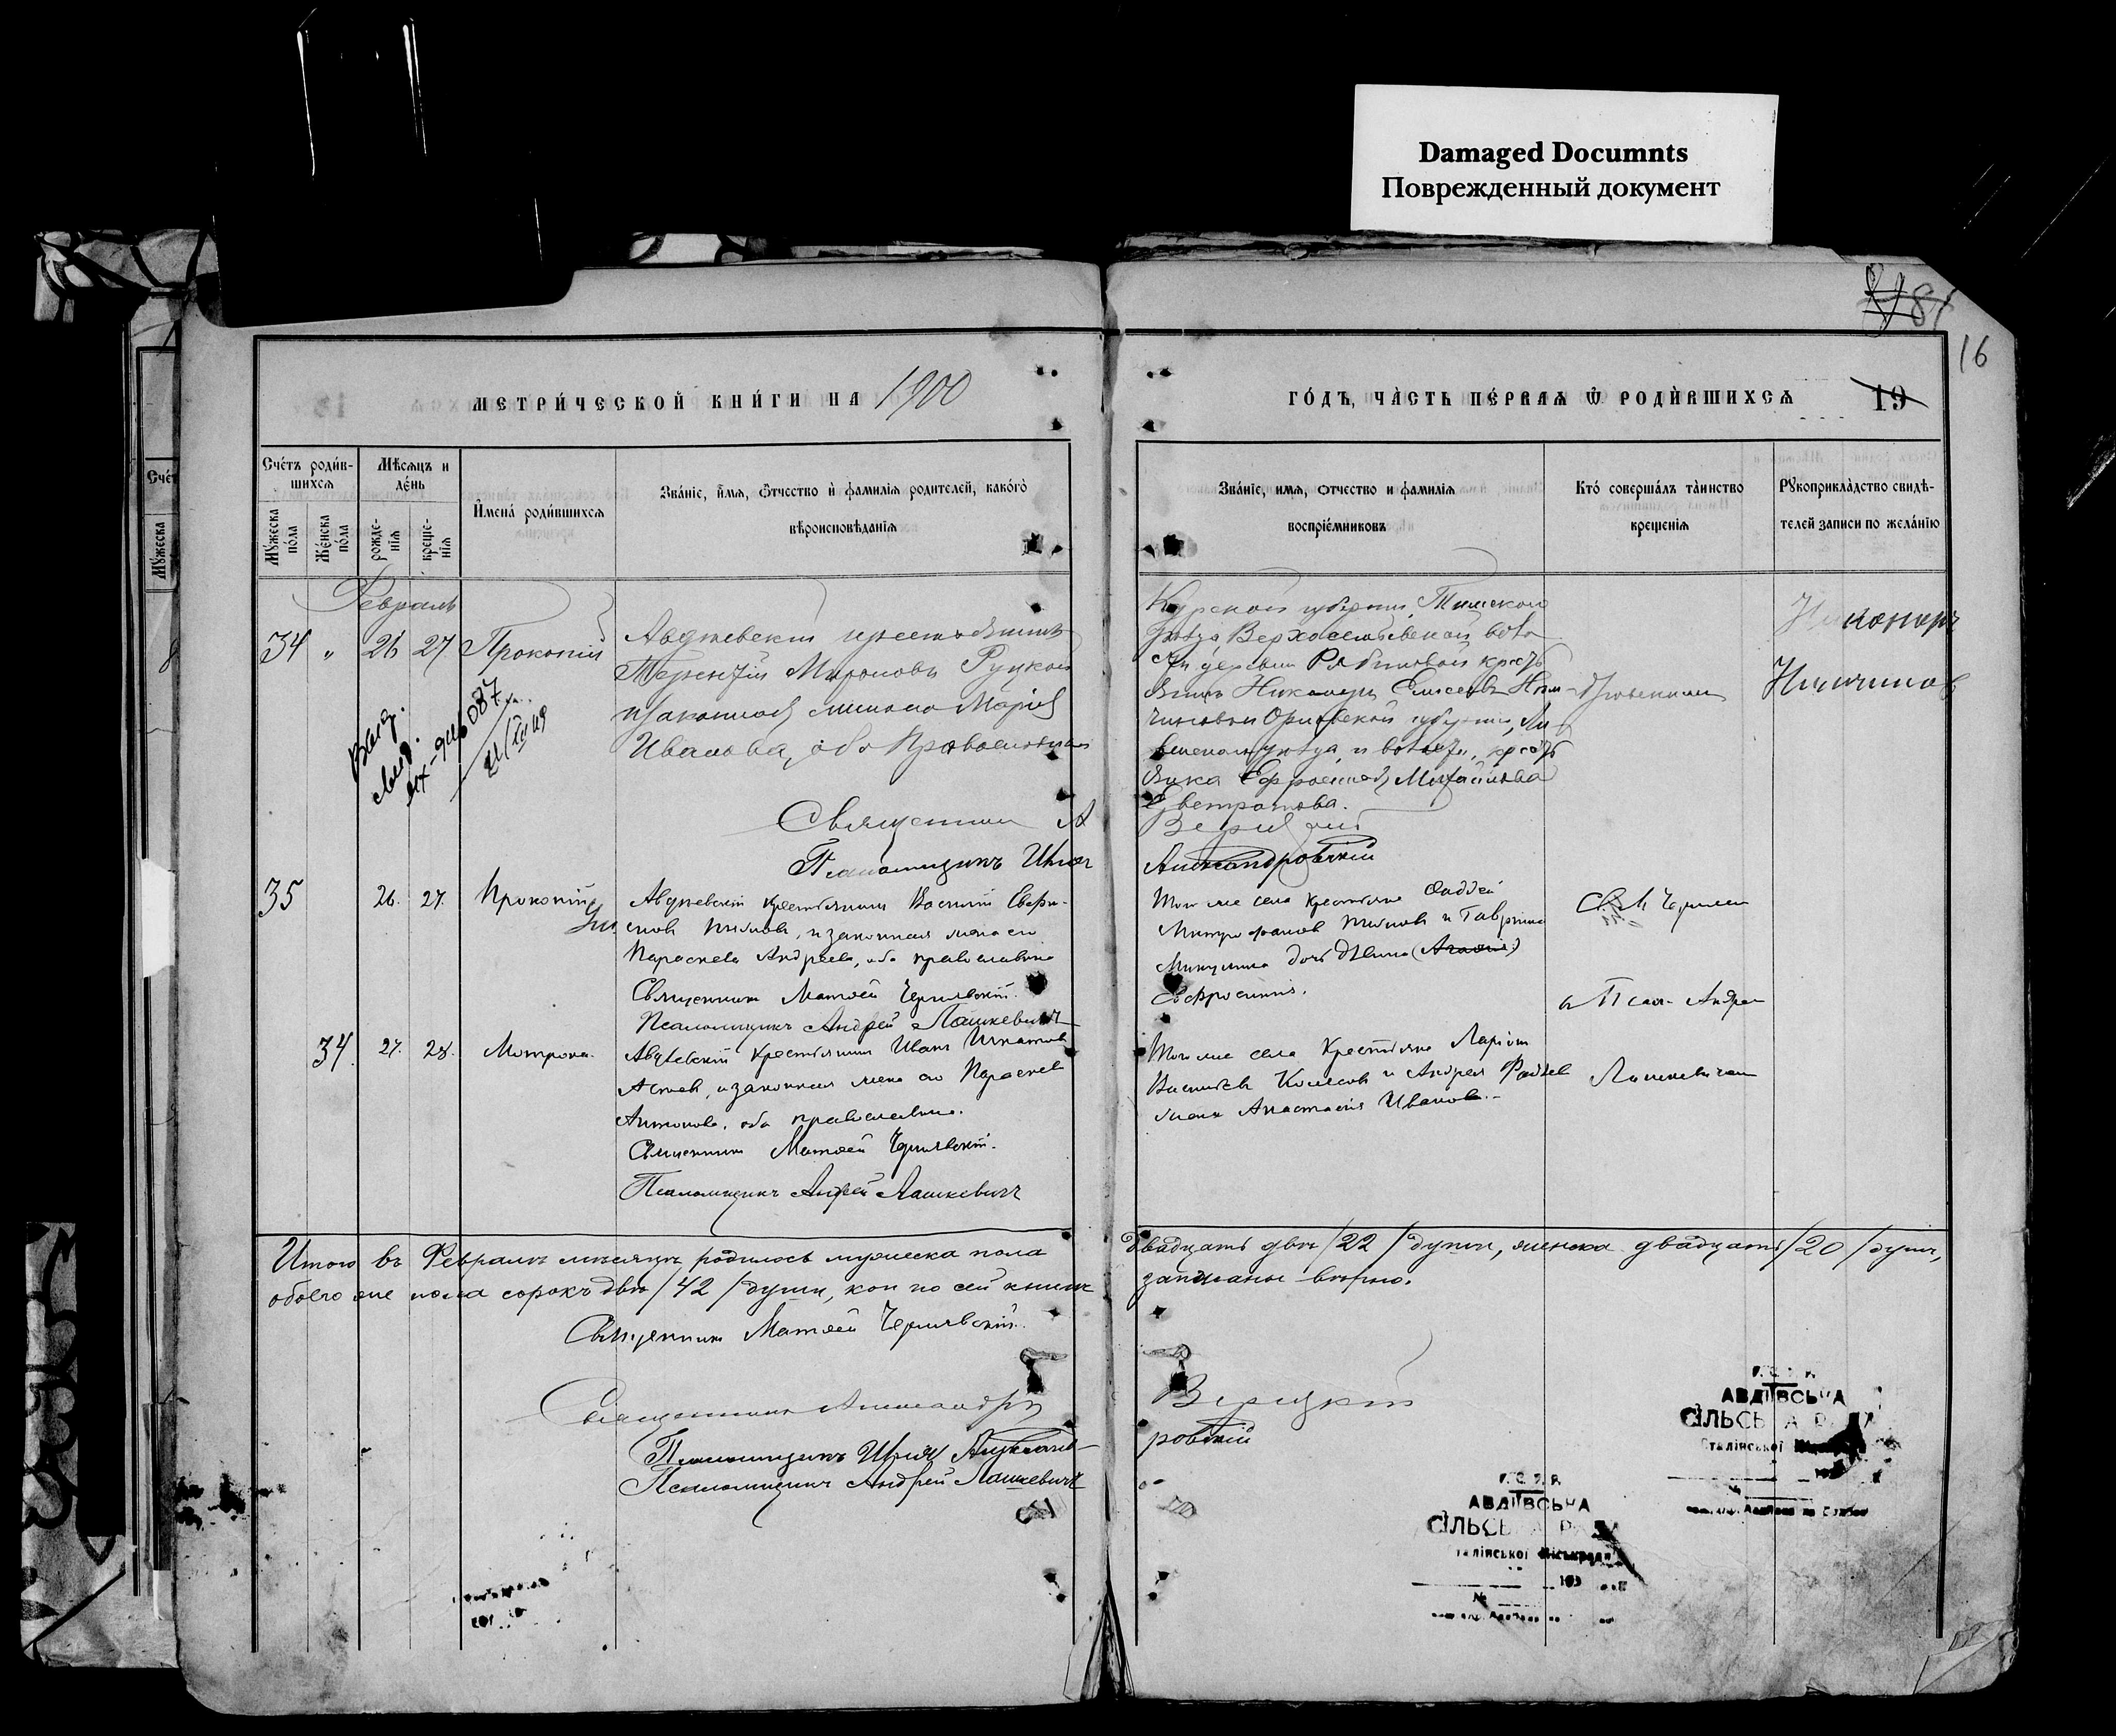 Damaged Documnts
Поврежденный документ
81
16
МЕТРИ́ЧЕСКОЙ КНИ́ГИ НА 1900
ГО́ДЪ, ЧА́СТЬ ПЕ́РВАѦ Ѿ РОДИ́ВШИХСѦ
19
Сче́тъ роди́в-
шихсѧ
Мѣ́сѧцъ и
де́нь
Му́жеска
по́ла
Же́нска
по́ла
рожде-
нїѧ
креще-
нїѧ
И҆мена́ роди́вшихсѧ
Зва́нїе, и҆́мѧ, ѻ҆́тчество и҆ фами́лїѧ роди́телей, како́гѡ
вѣроисповѣ́данїѧ
Зва́нїе, имѧ, отчество и фами́лїѧ
воспрїе́мниковъ
Кто́ соверша́лъ та́инство
креще́нїѧ
Рꙋкоприкла́дство свидѣ́-
телей записи по жела́нїю
Февраль
34 " 26 27 Прокопій
Авдѣевскій крестьянинъ
Терентій Мироновъ Руцкой
и законная жена его Марія
Иванова, оба Православные
Священник А
Псаломщикъ
Курской губерніи, Тимскаго
уѣзда, Верхосемѣевской воло
сти деревни Рябиновой кресть
янинъ Никаноръ Елисеевъ
Орловской губерніи, Ли
венскаго уѣзда и волости, кресть
янка Ефросинія Михайлова
Верицкій
Александровскій
Никаноръ
35 26. 27. Прокопій
Авдѣевскій крестьянинъ Василій
и законная жена его
Параскева Андреева, оба православные
Священник Матѳей Чернявскій.
Псаломщикъ Андрей Лашкевичъ
Того же села крестьяне Фаддей
Митрофановъ и Гавріила
Микулина дочь дѣвица
Евфросинія.
Св. М. Чернявск
и Псал. Андре
34. 27. 28. Матрона.
Авдѣевскій крестьянинъ Иванъ Игнатовъ
и законная жена его Параскева
Антонова, оба православные.
Священник Матѳей Чернявскій.
Псаломщикъ Андрей Лашкевичъ
Того же села крестьяне Ларіонъ
Васильевъ Колесовъ и Андрея
жена Анастасія Иванова.
Лашкевичем
Итого въ Февралѣ мѣсяцѣ родилось мужеска пола
двадцать двѣ /22/ души, женска двадцать /20/ душъ,
обоего же пола сорокъ двѣ /42/ души, кои по сей книгѣ
записаны вѣрно.
Священник Матѳей Чернявскій.
Священникъ Александръ
Верицкій
Псаломщикъ Александ-
ровскій
Псаломщикъ Андрей Лашкевичъ
АВДІЇВСЬКА
СІЛЬСЬКА РАДА
Сталінської
№
АВДІЇВСЬКА
СІЛЬСЬКА РАДА
Сталінської Міськради
193
№